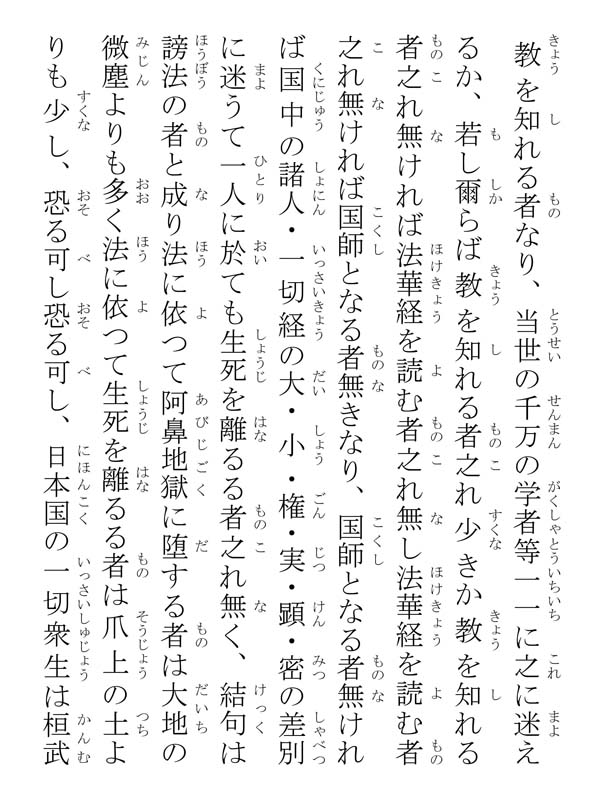 教を知れる者なり、当世の千万の学者等一一に之に迷え
るか、若し爾らば教を知れる者之れ少きか教を知れる
者之れ無ければ法華経を読む者之れ無し法華経を読む者
之れ無ければ国師となる者無きなり、国師となる者無けれ
ば国中の諸人・一切経の大・小・権・実・顕・密の差別
に迷うて一人に於ても生死を離るる者之れ無く、結句は
謗法の者と成り法に依つて阿鼻地獄に堕する者は大地の
微塵よりも多く法に依つて生死を離るる者は爪上の土よ
りも少し、恐る可し恐る可し、日本国の一切衆生は桓武